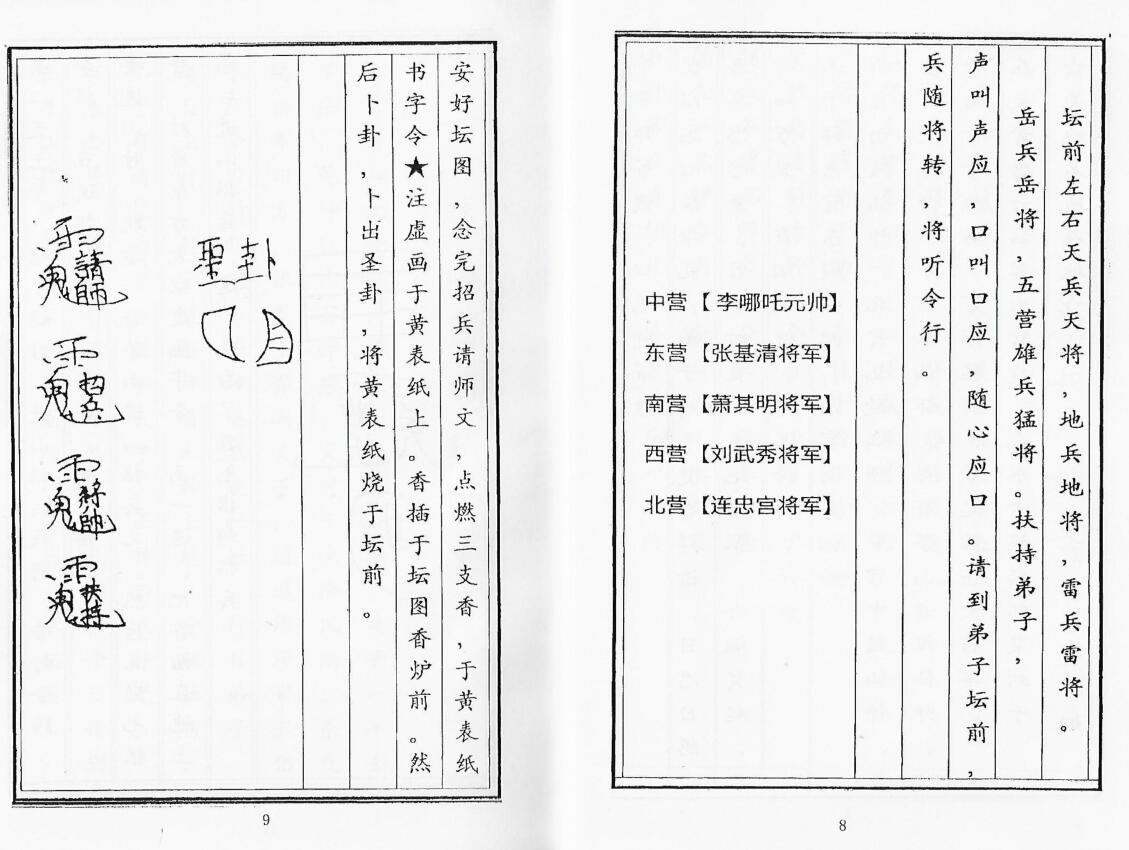 坛前左右天兵天将,地兵地将,雷兵雷将。
岳兵岳将,五营雄兵猛将。扶持弟子,
声叫声应,口叫口应,随心应口。请到弟子坛前,
兵随将转,将听令行
中营【李哪吒元帅】
东营【张基清将军】
南营【萧其明将军】
西营【刘武秀将军】
北营【连忠宫将军】
8
安好坛图,念完招兵请师文,点燃三支香,于黄表纸
书字令★注虚画于黄表纸上。香插于坛图香炉前。然
后卜卦,卜出圣卦,将黄表纸烧于坛前。
聖卦
9